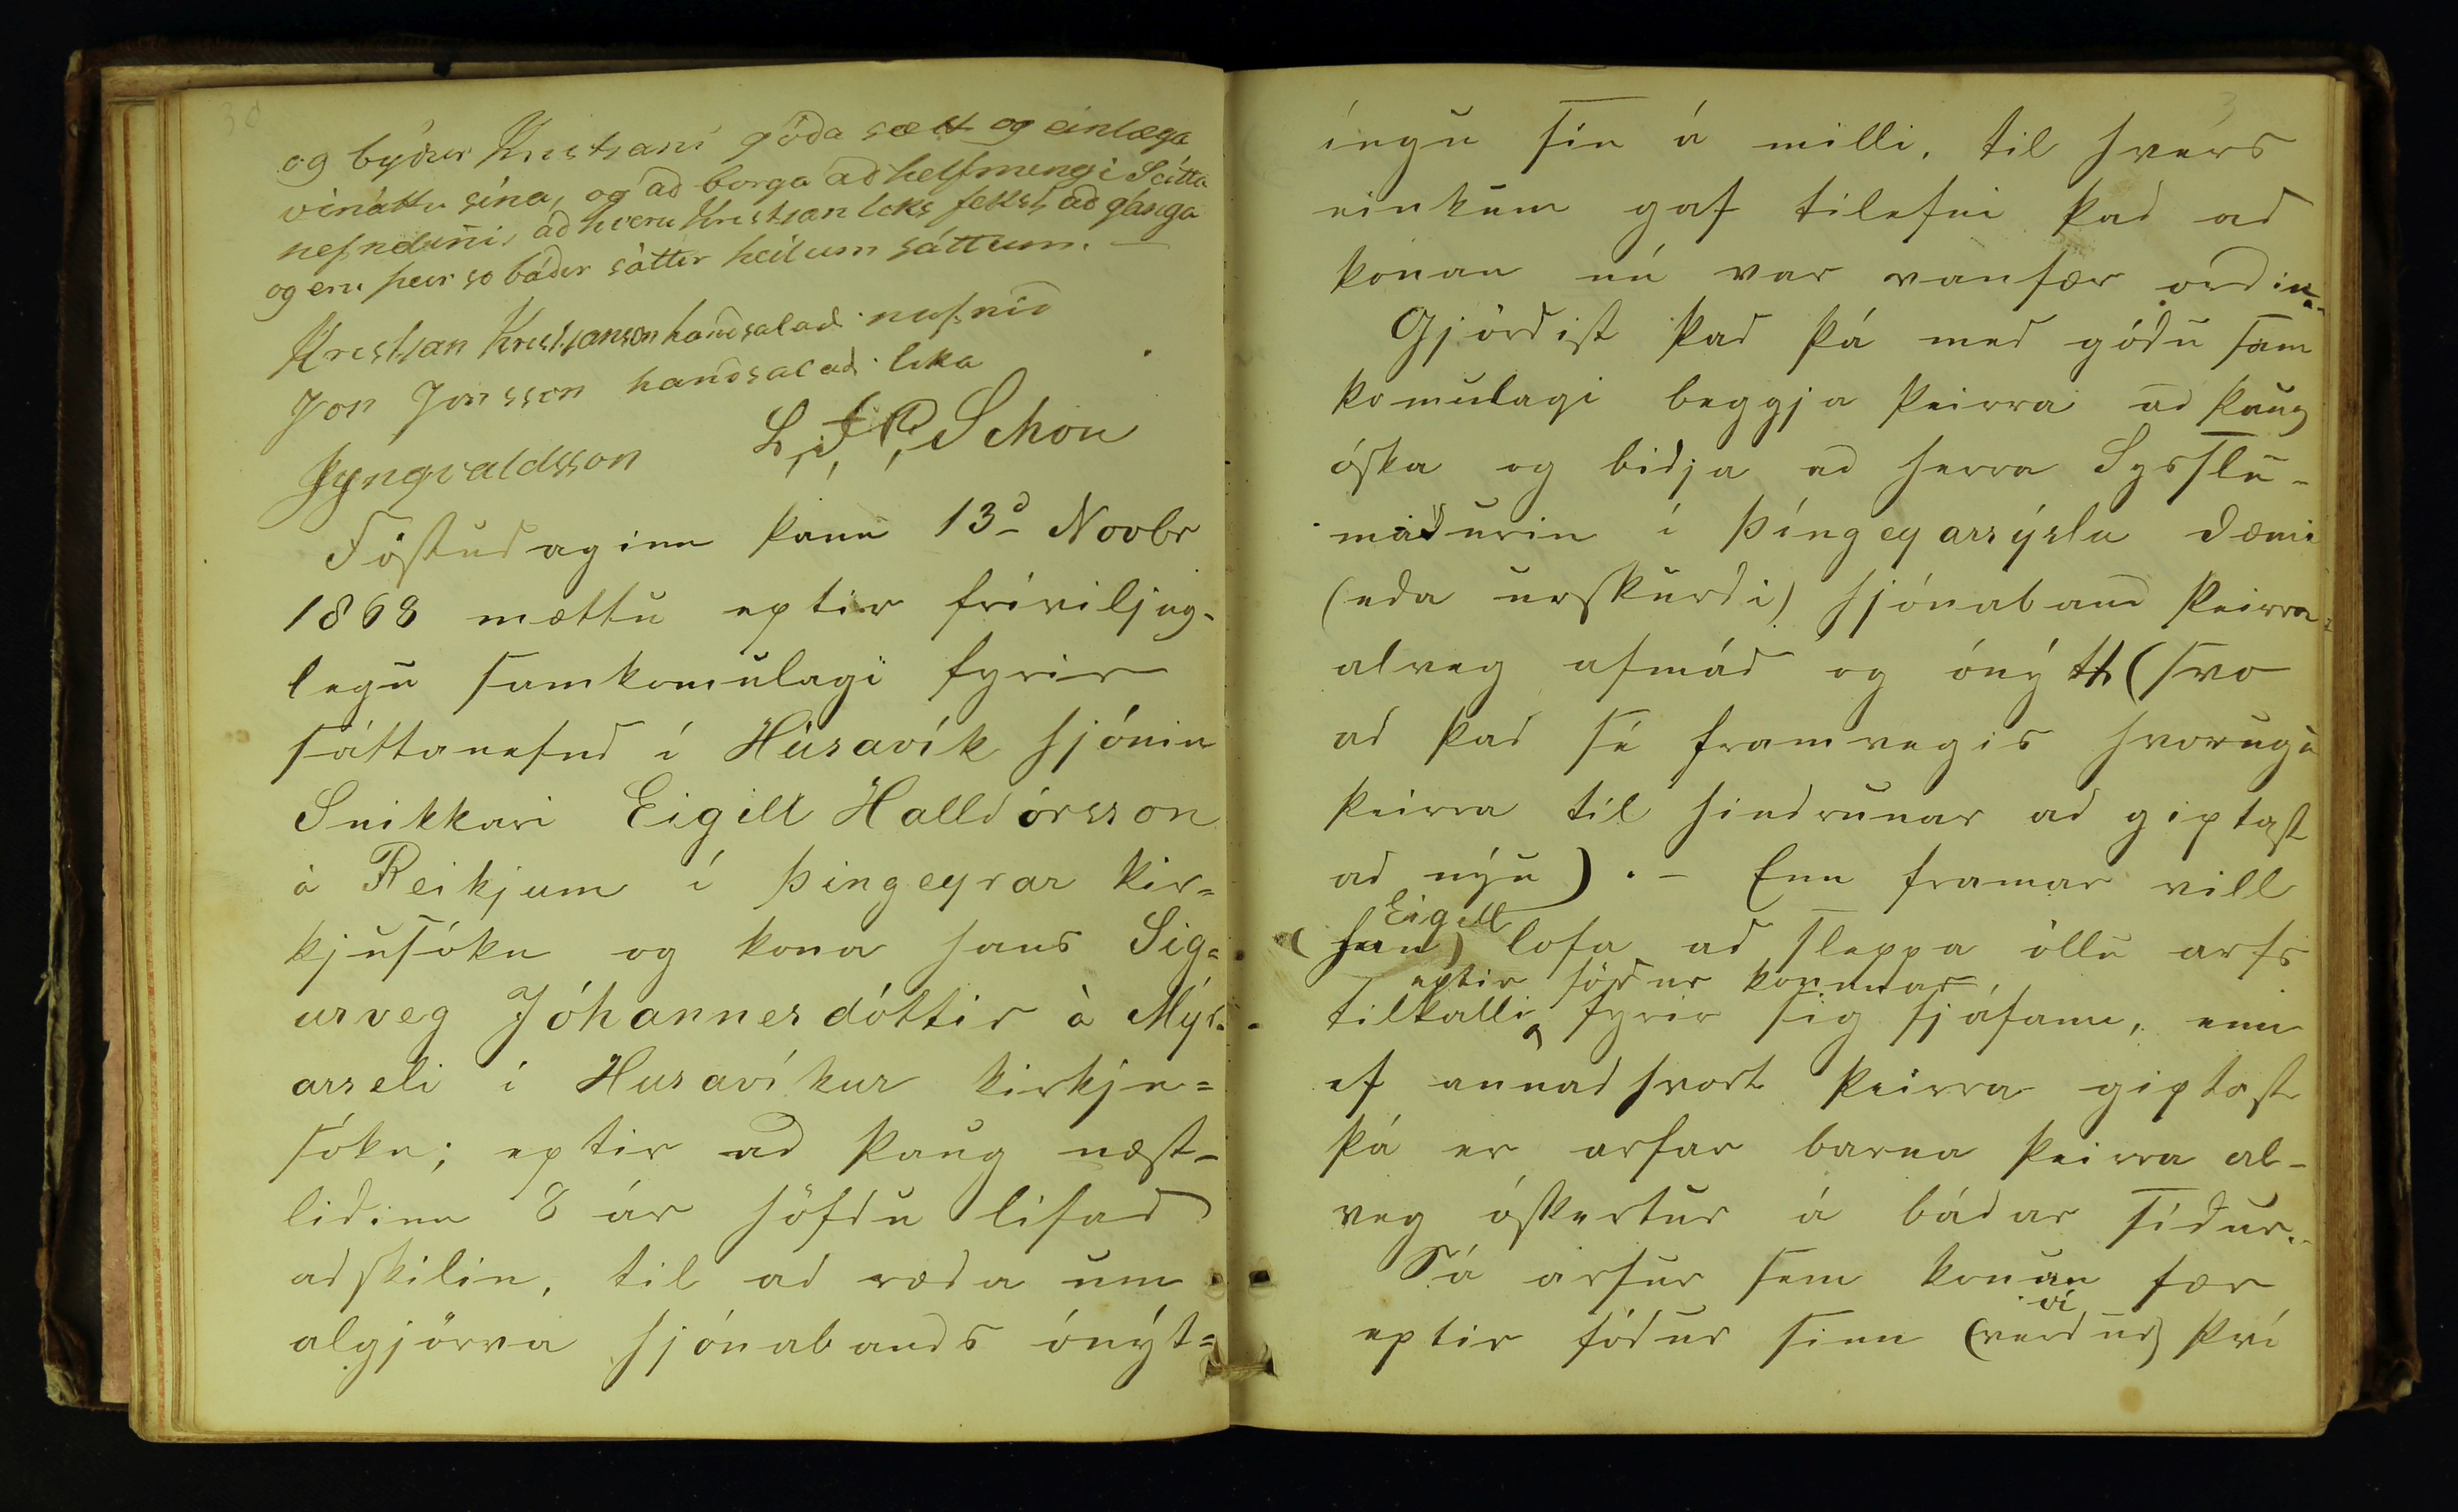 30
og býður Kristjani góða sætt og einlæga
vináttu sína, og að borga að helfmengi Sátta
nefndinni, að hveru Kristjan loks fellst að gánga
og eru þeir so báðir sáttir heilum sáttum. —
Kristjan Kristjansson handsalað nafnið
Jon Jonsson handsalað lika
JIngvaldsson L. J. P. Schou
Föstudaginn þann 13d Novbr
1868 mættu eptir fríviljug-
legu samkomulagi fyrir
sáttanefnd í Húsavík hjónin
Snikkari Eigill Halldórsson
á Reikjum í Þingeyrar kir=
kjusókn og kona hans Sig=
urveg Jóhannesdóttir á Mýr-
arseli í Husavíkur kirkju=
sókn; eptir ad þaug næst-
lidinn 8 ár höfdu lifad
adskilin, til ad ræda um
algjörva hjónabands ónýt=
íngu sín á milli, til hvers
einkum gaf tilefni þad ad
konan nú var vanfær ordin.
Gjördist þad þá med gódu sam
komulagi beggja þeirra ad þaug
óska og bidja ad herra Sysslu-
madurin í Þíngeyarsýslu dæmi
(eda urskurdi) hjónaband þeirra
alveg afmád og ónýtt (svo
ad þad sé framvegis hvorugu
þeirra til hindrunar ad giptast
ad nýu). - Enn framar vill
Eigill
(hann) lofa ad sleppa öllu arfs
eptir födur konunar
tilkalli fyrir sig sjáfann, enn
ef annadhvort þeirra giptast
þá er arfur barna þeirra al-
veg óskertur á bádar sídur.
Sá arfur sem konan fær
eptir födur sinn (verdur) því